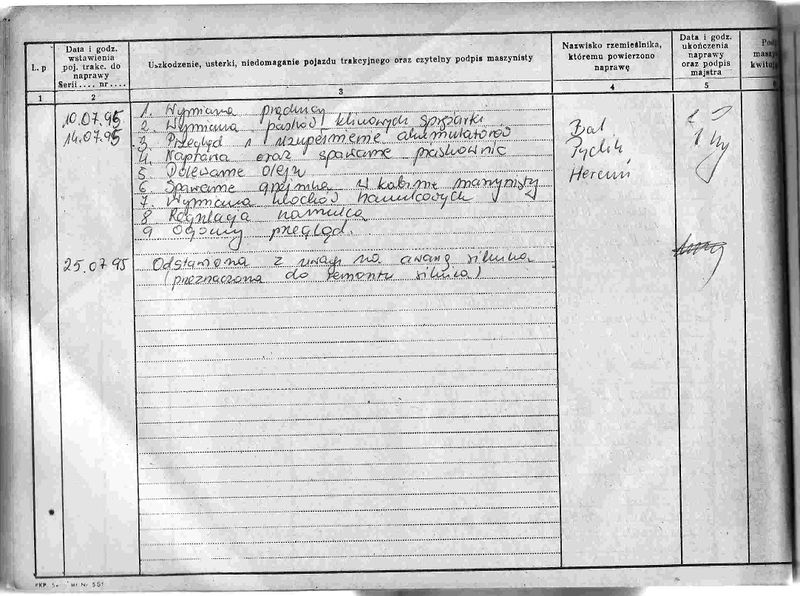 L. p
Data i godz.
wstawienia
poj. trakc. do
naprawy
Serii.... nr....
Uszkodzenie, usterki, niedomaganie pojazdu trakcyjnego oraz czytelny podpis maszynisty
Nazwisko rzemieślnika,
któremu powierzono
naprawę
Data i godz.
ukończenia
naprawy
oraz podpis
majstra
1
2
3
4
5
10.07.95
14.07.95
1. Wymiana prądnicy
2. Wymiana pasków klinowych sprężarki
3. Przegląd i uzupełnienie akumulatorów
4. Naprawa oraz spawanie piaskownic
5. Dolewanie oleju
6. Spawanie grzejnika w kabinie maszynisty
7. Wymiana klocków hamulcowych
8 Regulacja hamulca
9 Ogólny przegląd.
Bal
25.07 95
Odstawiona z uwagi na awarię silnika
(przeznaczona do remontu silnika)